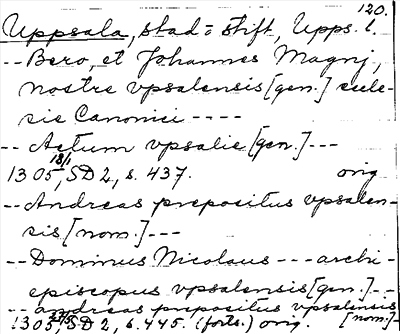 120.
Uppsala, stad o. stift, Upps. l.
-- Bero, et Johannes Magnj,
nostre vpsalensis [gen.] eccle-
sie Canonici ----
-- Actum vpsalie [gen.] ---
1305 18/1, SD 2, s. 437. orig
-- Andreas prepositus vpsalen-
sis [nom.] ---
-- Dominus Nicolaus --- archi-
episcopus vpsalensis [gen.] --
-- andreas prepositus vpsalensis
1305, SD 2, s. 445. (forts.) orig. [nom.] --